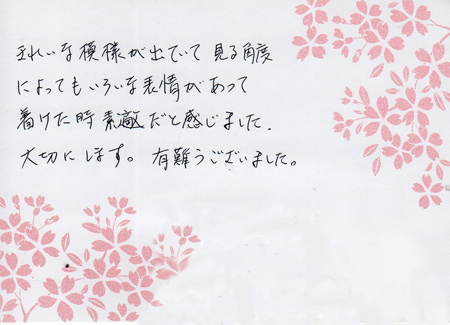 きれいな模様が出ていて 見る角度
によってもいろいろな表情があって
着けた時 素敵だと感じました.
大切にします。 有難うございました。